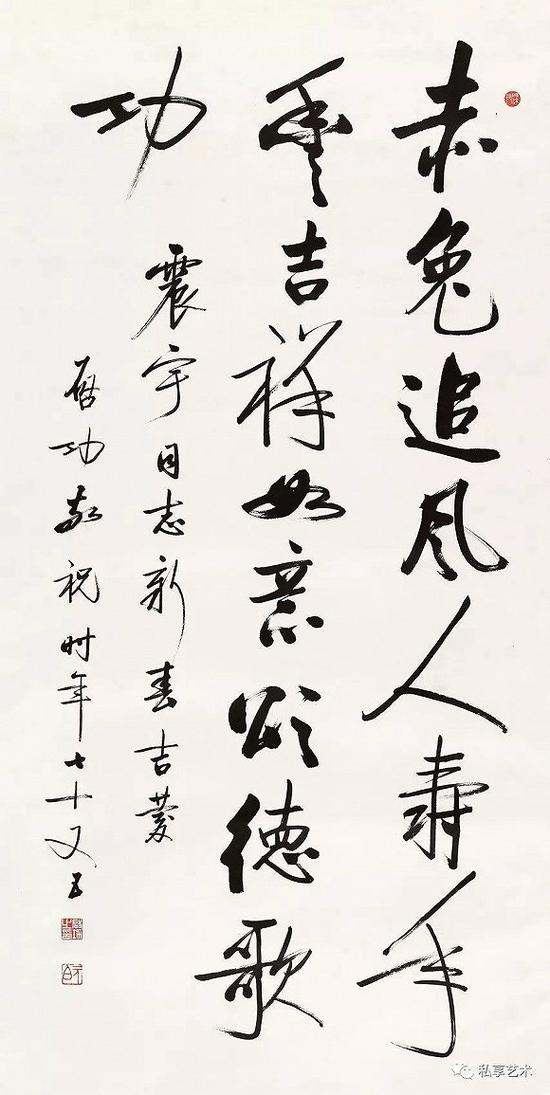 赤兔追风人寿年
豐吉祥如意颂德歌
功
震宇同志新春吉慶
启功敬祝时年七十又五
私享艺术